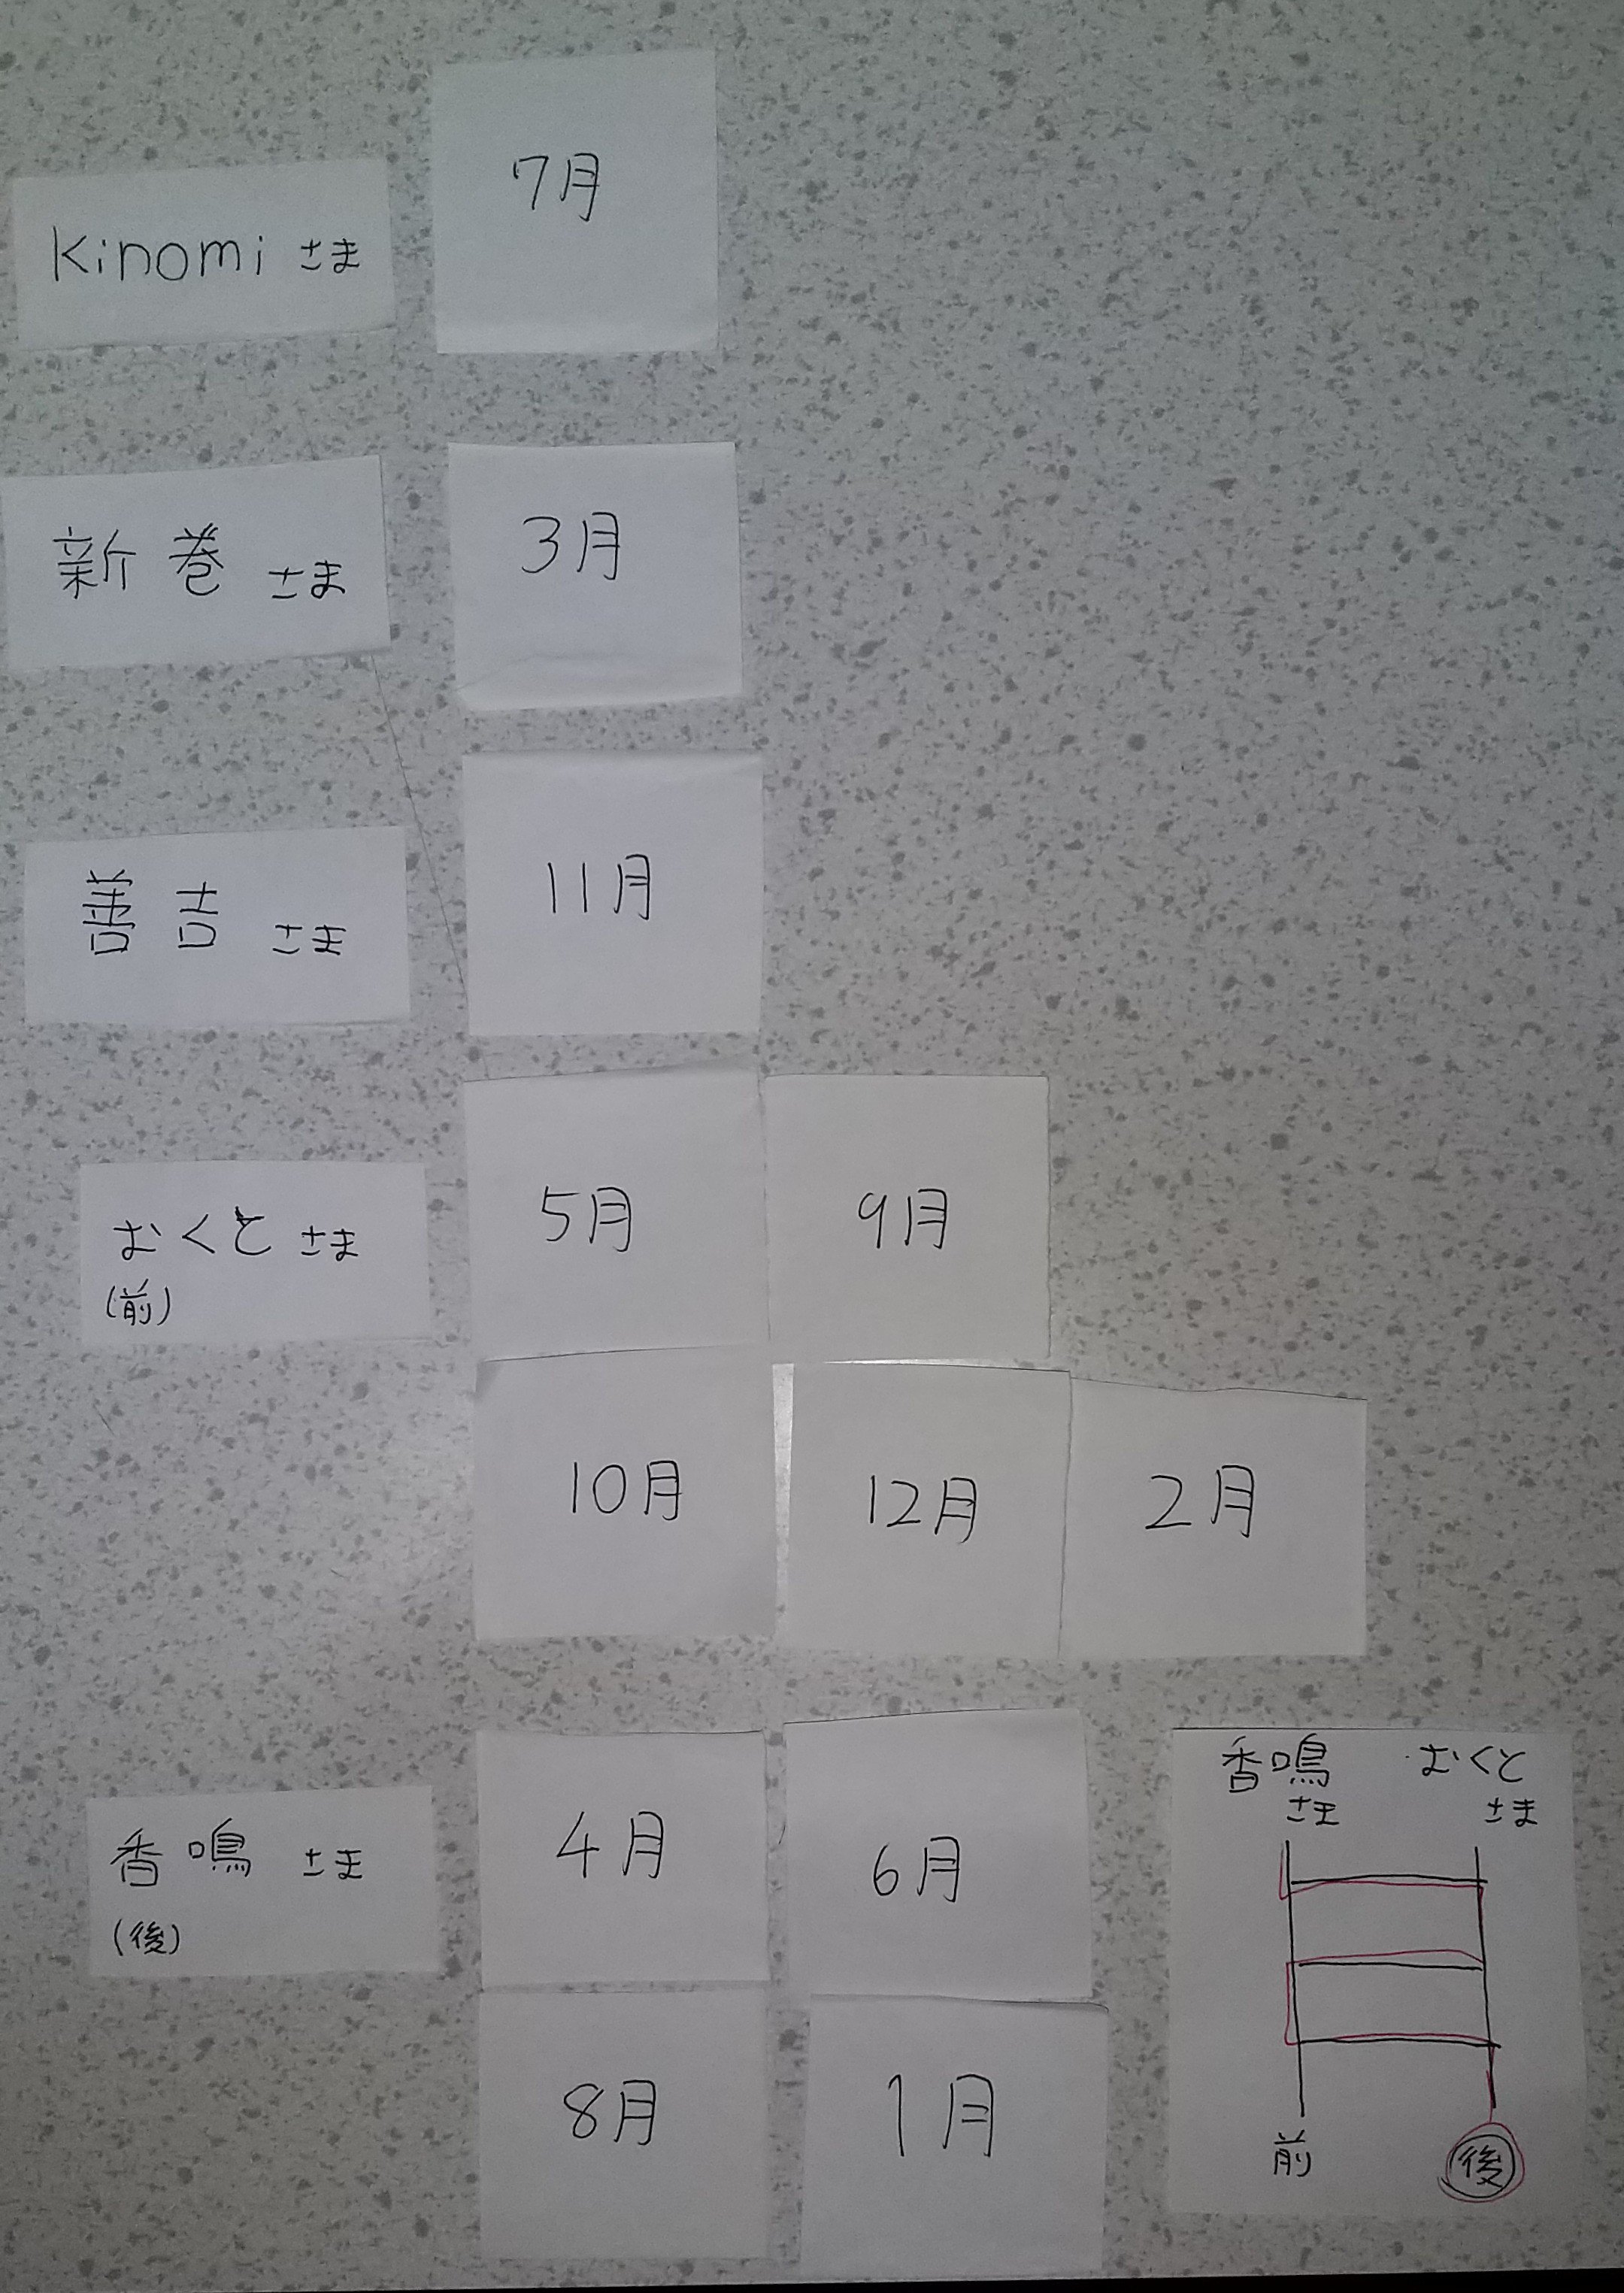 7月
Kinomi さま
新巻 さま
3月
善吉 さま
11月
むくと さま
(前)
5月
9月
10月
12月
2月
香鳴 さま
(後)
4月
6月
8月
1月
香鳴 さま
むくと さま
前
後